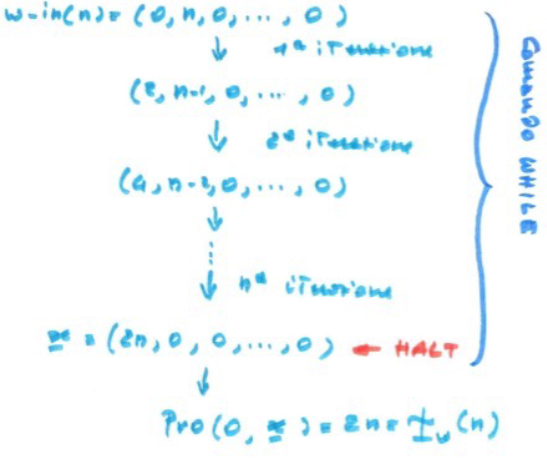 w-in(n) = (0, n, 0, ..., 0)
↓ 1ª iterazione
(2, n-1, 0, ..., 0)
↓ 2ª iterazione
(4, n-2, 0, ..., 0)
↓
⋮
↓ nª iterazione
x = (2n, 0, 0, ..., 0) ← HALT
↓
Pro(0, x) = 2n = Ψw(n)
Comando WHILE